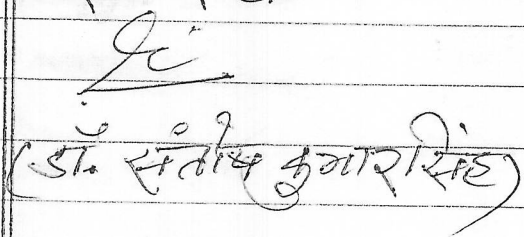 (डॉ. संतोष कुमार सिंह)